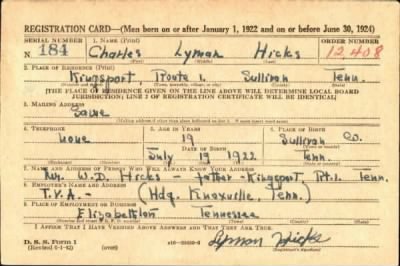 REGISTRATION CARD—(Men born on or after January 1, 1922 and on or before June 30, 1924)
SERIAL NUMBER 1. NAME (Print) ORDER NUMBER
N 184 Charles Lyman Hicks 12,408
2. PLACE OF RESIDENCE (Print)
Kingsport, Route 1. Sullivan Tenn.
(THE PLACE OF RESIDENCE GIVEN ON THE LINE ABOVE WILL DETERMINE LOCAL BOARD
JURISDICTION; LINE 2 OF REGISTRATION CERTIFICATE WILL BE IDENTICAL)
3. MAILING ADDRESS
Same
4. TELEPHONE 5. AGE IN YEARS 6. PLACE OF BIRTH
none 19 Sullivan Co.
DATE OF BIRTH
July 19 1922 Tenn.
7. NAME AND ADDRESS OF PERSON WHO WILL ALWAYS KNOW YOUR ADDRESS
Mr. W.D. Hicks - father - Kingsport, Rt.1. Tenn.
8. EMPLOYER'S NAME AND ADDRESS
T.V.A. - (Hdq. Knoxville, Tenn.)
9. PLACE OF EMPLOYMENT OR BUSINESS
Elizabethton Tennessee
I AFFIRM THAT I HAVE VERIFIED ABOVE ANSWERS AND THAT THEY ARE TRUE.
D. S. S. Form 1 (over)
Lyman Hicks